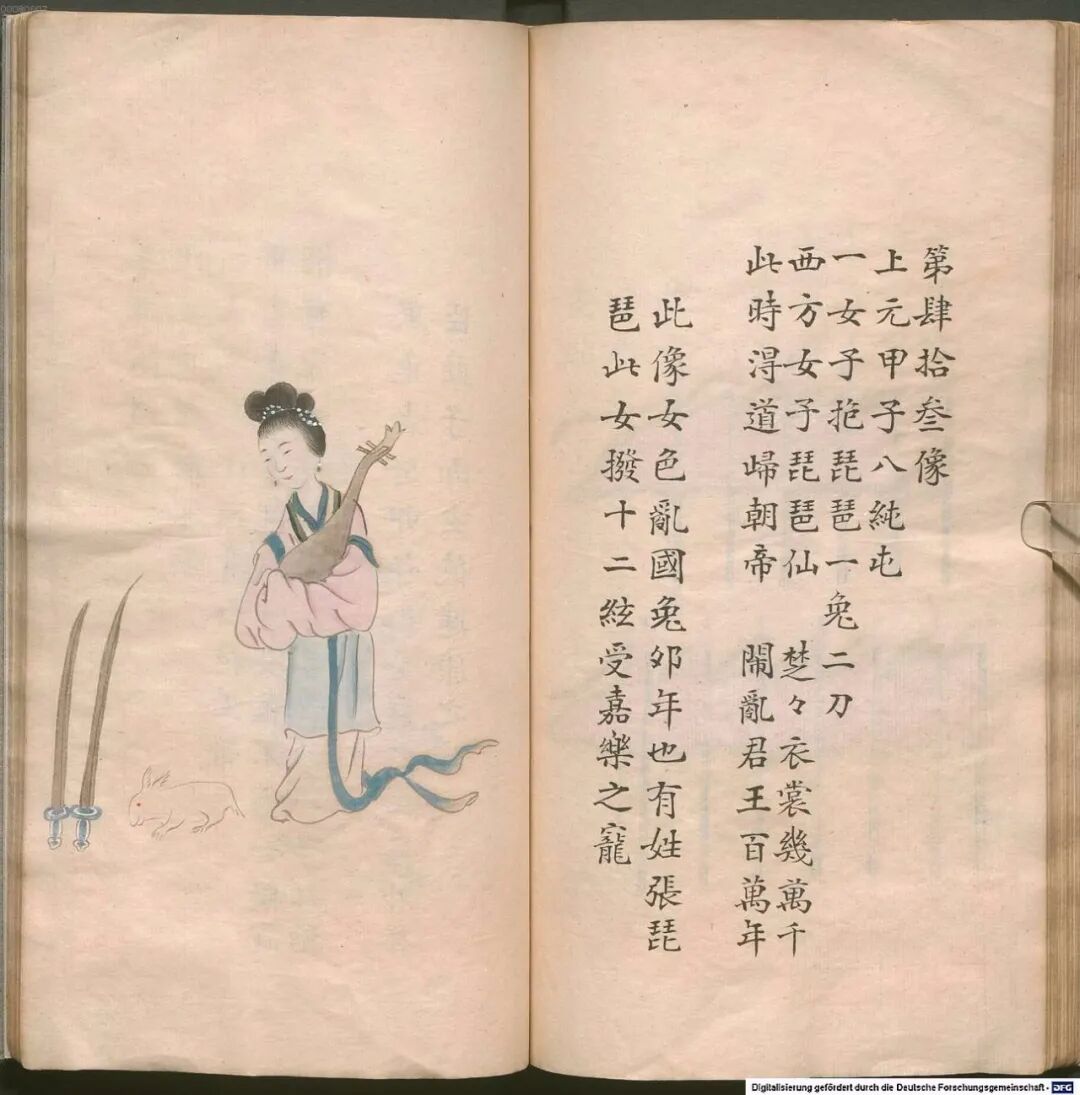 第肆拾叁像
上元甲子八純屯
一女子抱琵琶一兔二刀
西方女子琵琶仙 楚々衣裳幾萬千
此時得道歸朝帝 鬧亂君王百萬年
此像女色亂國兔卯年也有姓張琵
琶此女撥十二絃受嘉樂之寵
Digitalisierung gefördert durch die Deutsche Forschungsgemeinschaft - DFG